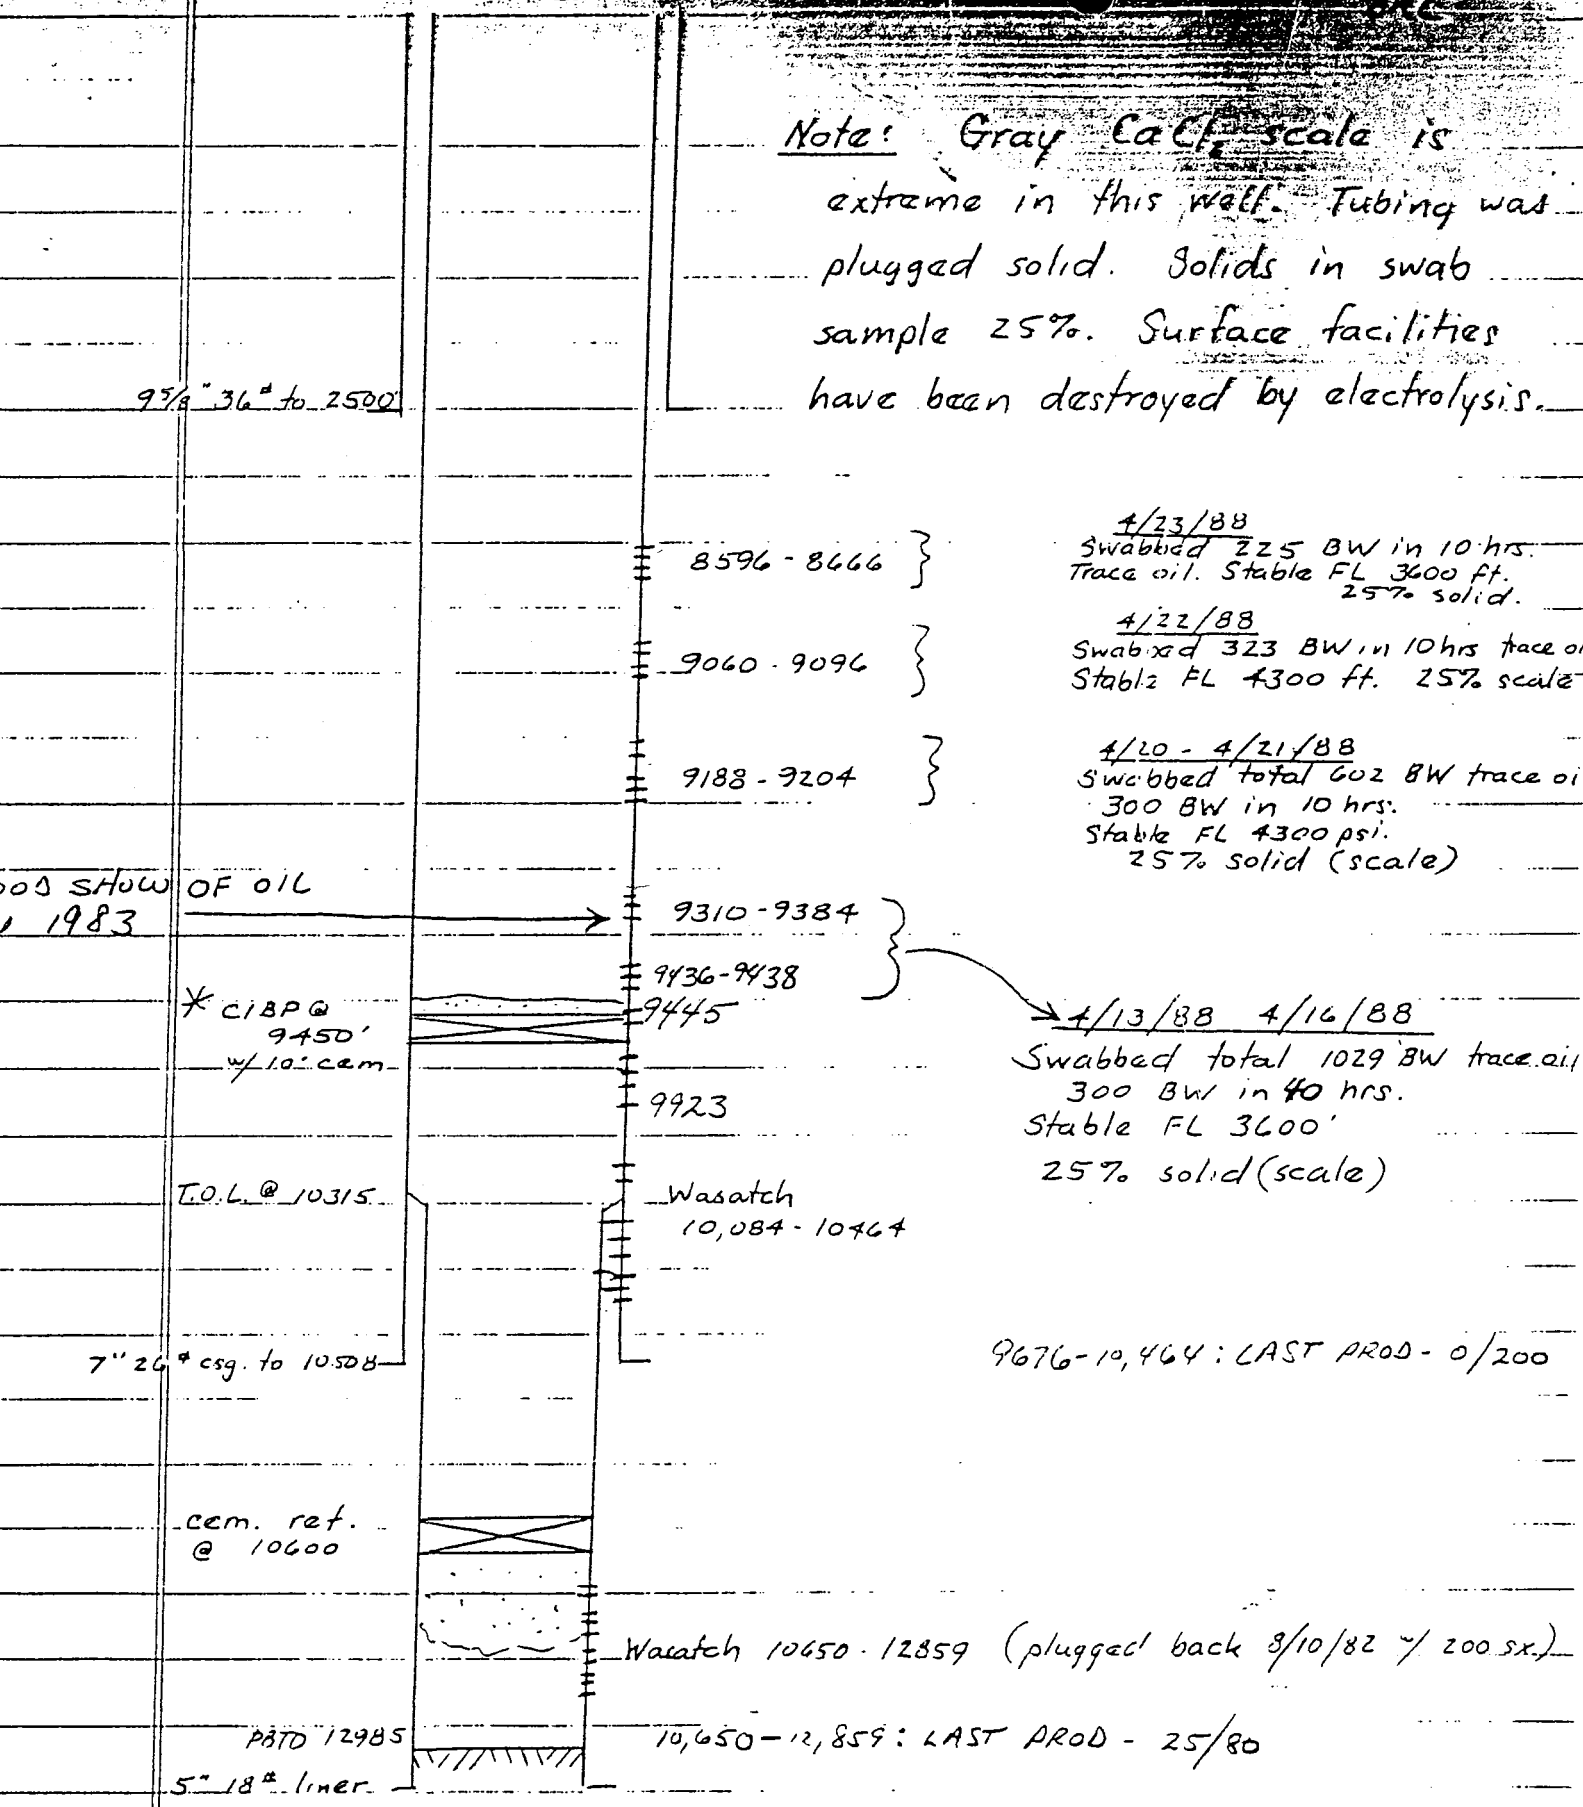 Note: Gray CaCl2 scale is
extreme in this well. Tubing was
plugged solid. Solids in swab
sample 25%. Surface facilities
have been destroyed by electrolysis.
9 5/8" 36# to 2500'
8596 - 8666
4/23/88
Swabbed 225 BW in 10 hrs.
Trace oil. Stable FL 3600 ft.
25% solid.
9060 - 9096
4/22/88
Swabbed 323 BW in 10 hrs trace oi
Stable FL 4300 ft. 25% scale
9188 - 9204
4/20 - 4/21/88
Swabbed total 602 BW trace oi
300 BW in 10 hrs.
Stable FL 4300 psi.
25% solid (scale)
OOD SHOW OF OIL
1983
9310-9384
9436-9438
9445
* CIBP @
9450'
w/ 10' cem
4/13/88 4/16/88
Swabbed total 1029 BW trace oil
300 BW in 40 hrs.
Stable FL 3600'
25% solid (scale)
9923
T.O.L. @ 10315
Wasatch
10,084 - 10464
7" 26# csg. to 10508
9676-10,464: LAST PROD - 0/200
cem. ret.
@ 10600
Wasatch 10650 - 12859 (plugged back 8/10/82 w/ 200 sx.)
PBTD 12985
10,650-12,859: LAST PROD - 25/80
5" 18# liner